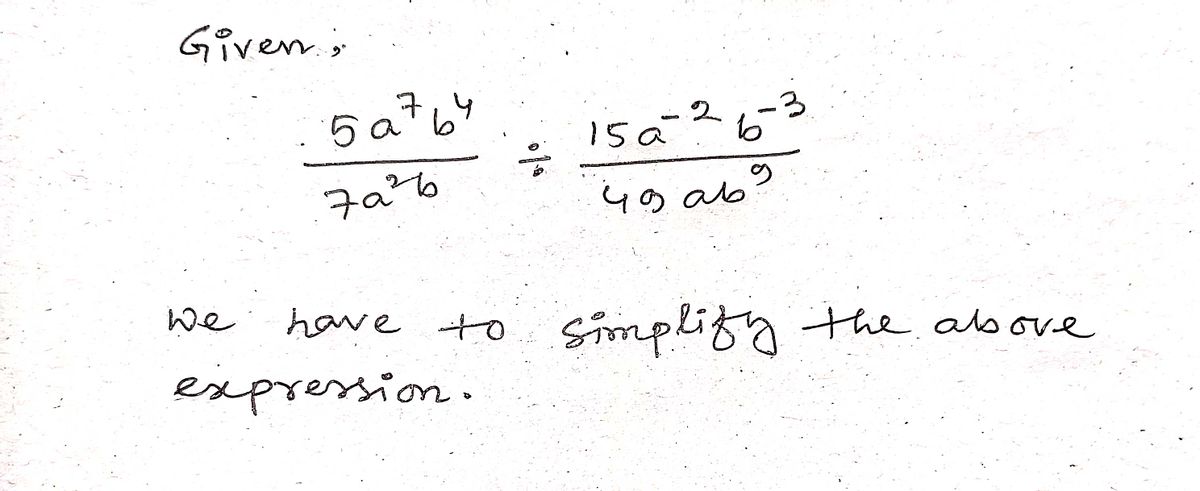 Given,
5a⁷b⁴ / 7a²b ÷ 15a⁻²b⁻³ / 49ab⁹
We have to simplify the above
expression.